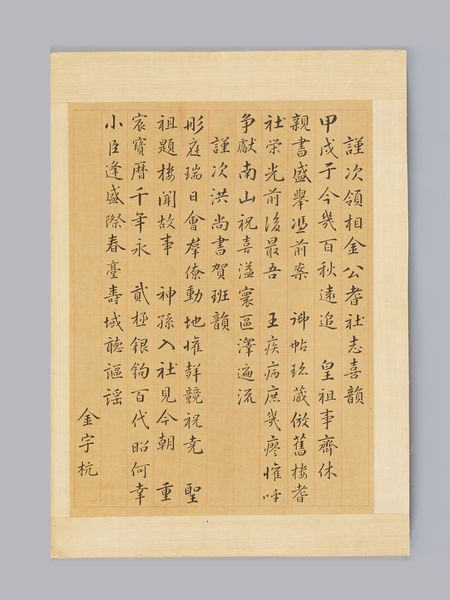 謹次領相金公耆社志喜韻
甲戌于今幾百秋遠追 皇祖事齊休
親書盛擧憑前案 御帖珍藏倣舊樓耆
社荣光前後最吾 王疾病庶幾瘳懽呼
争獻南山祝喜溢寰區澤遍流
謹次洪尚書賀班韻
彤庭瑞日會羣僚動地懽聲競祝堯 聖
祖題樓聞故事 神孫入社見今朝 重
宸寳曆千年永 貳極銀鉤百代昭何幸
小臣逢盛際春臺壽域聽謳謠
金宇杭